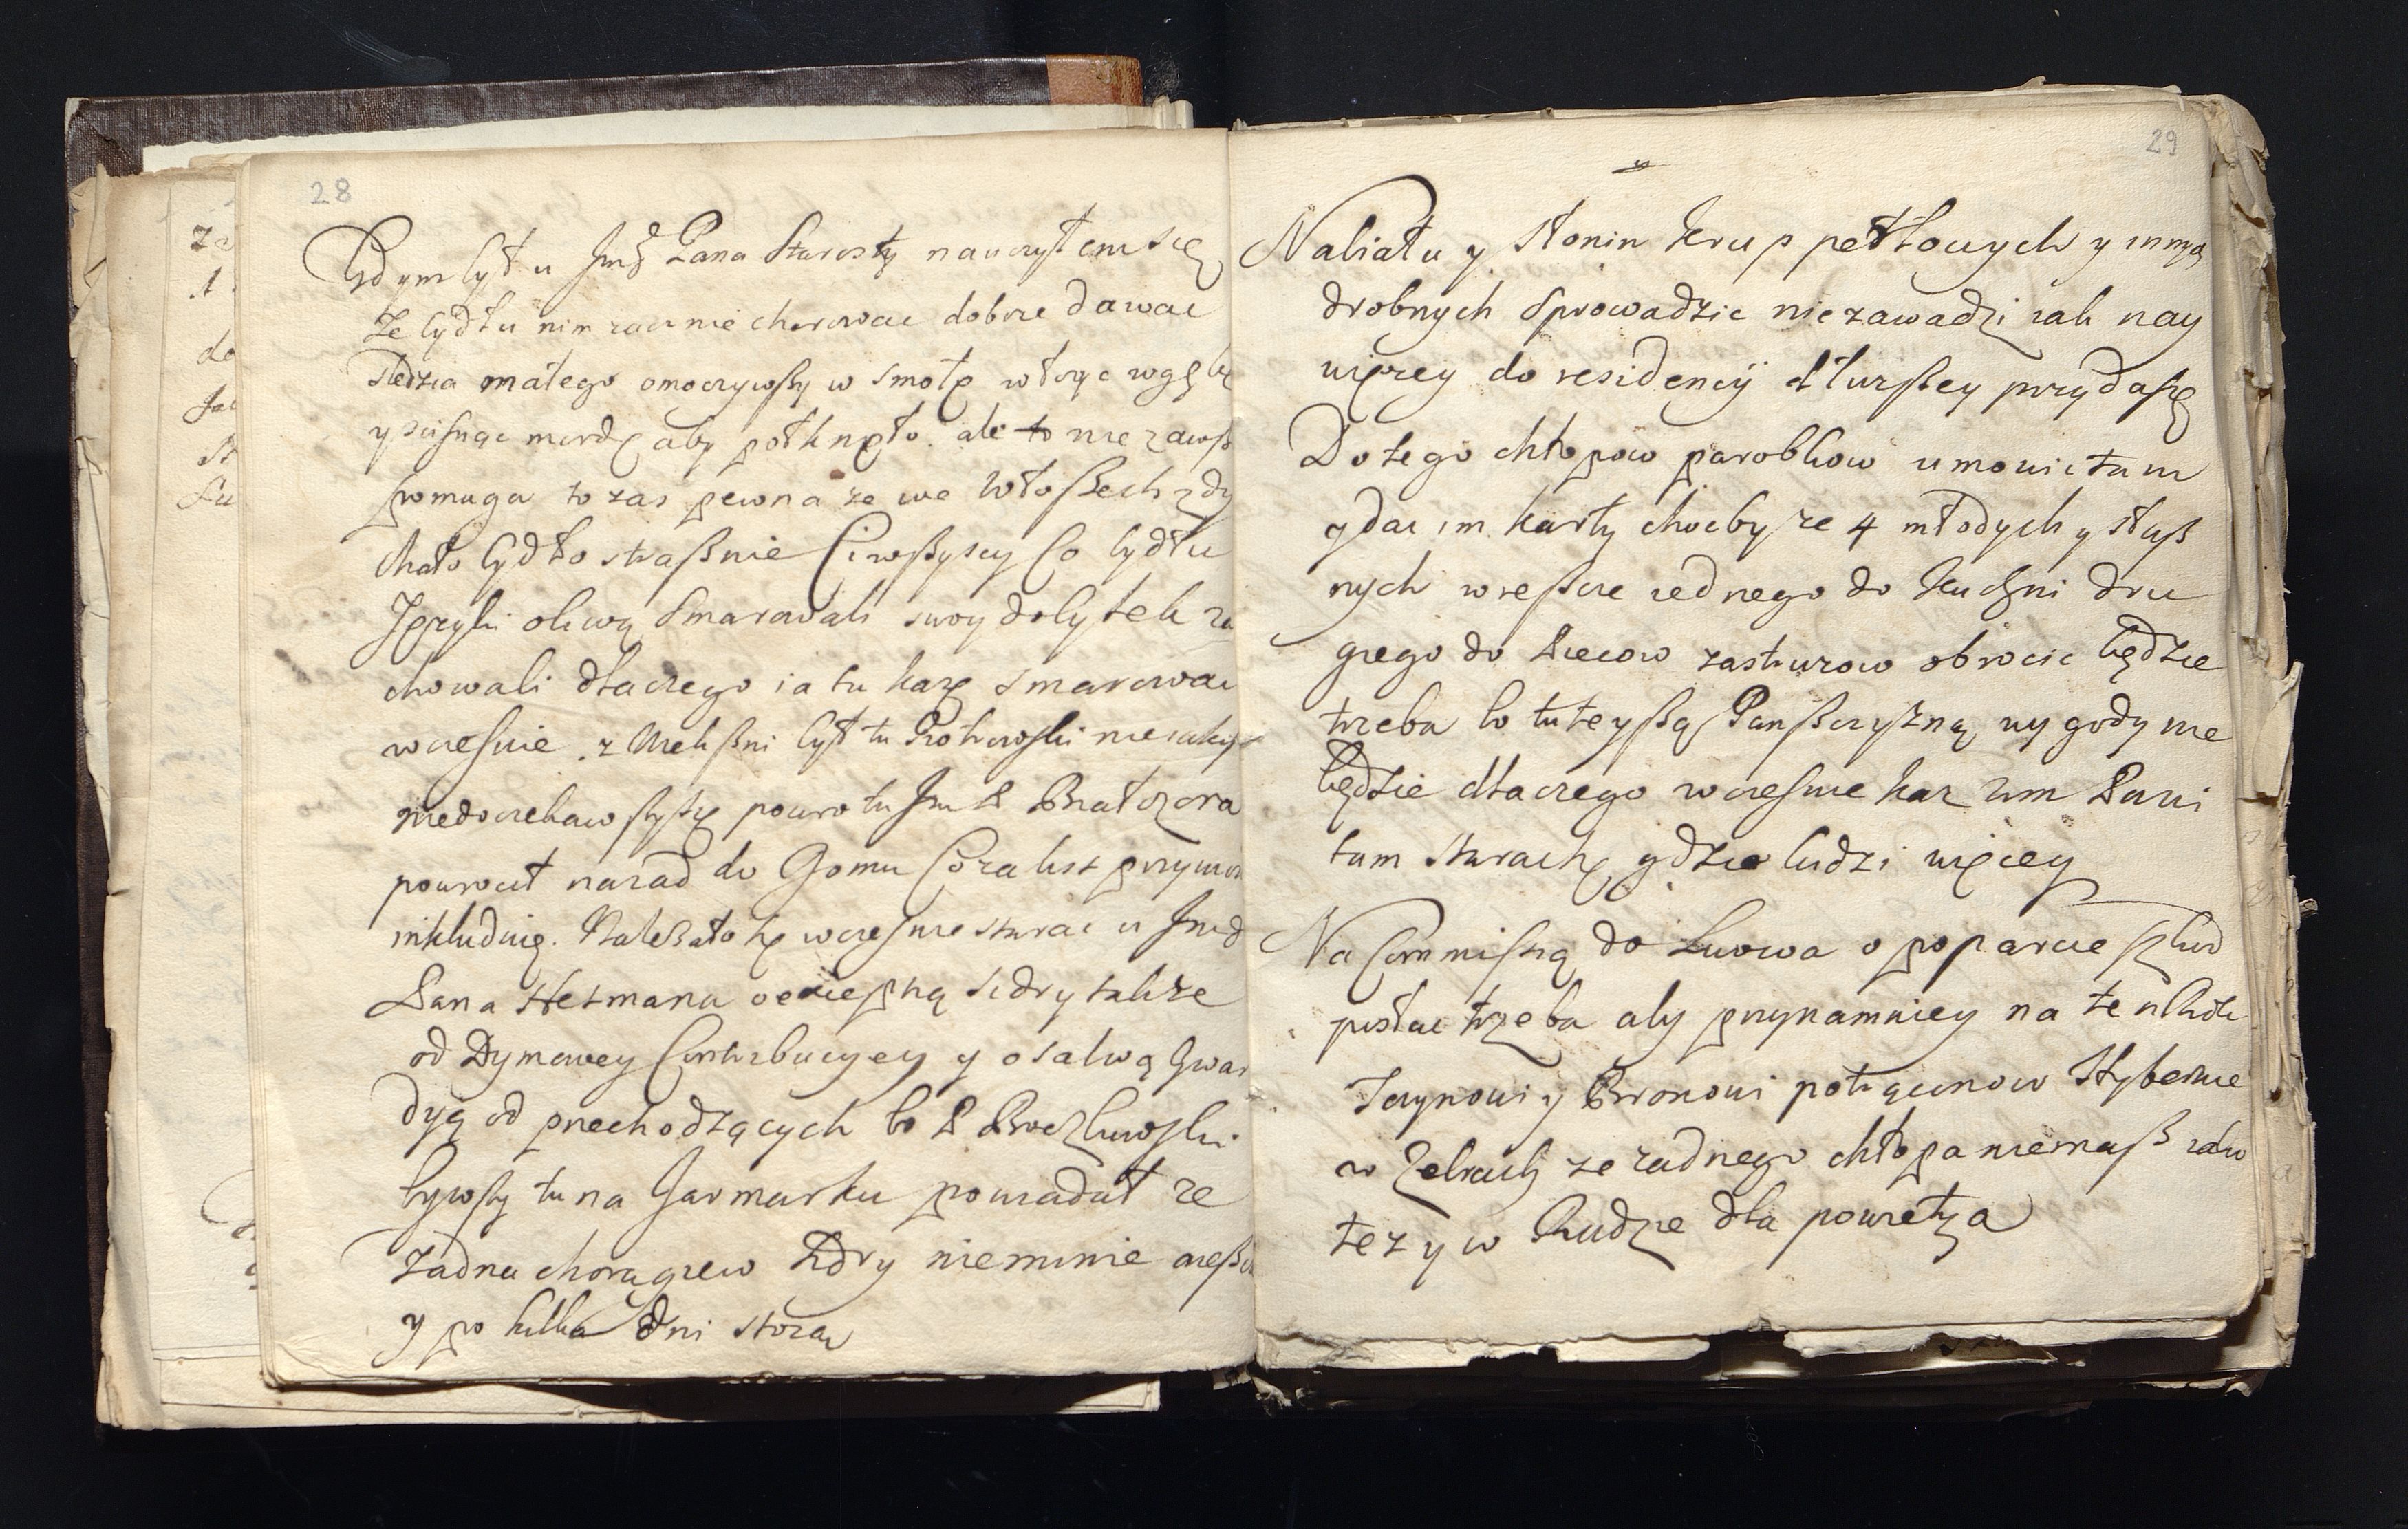 28
Gdym był u Jmś Pana Starosty nauczyłem się
że bydłu nim zacznie chorować dobrze dawać
śledzia małego omoczywszy w smołę włożyć w gębę
y scisnąć mordę aby połknęło. ale to nie zawsze
pomaga to zas pewna że we Włoszech zdy
chało bydło strasznie Ci wszyscy Co bydłu
Języki oliwą smarowali swoy dobytek za
chowali dlaczego ia tu każę smarować
wcześnie. z był tu Piotrowski
niedoczekawszysię powrotu Jm P
powrocił nazad do Domu Co za list przyniosł
inkluduię. Należało się wcześnie starać u Jmci
Pana Hetmana Sidry także
od Dymowey Contribucyey y o salwą Gwar
dyą od przechodzących bo P
bywszy tu na Jarmarku powiadał ze
żadna chorągiew Sidry nieminie ieszcze
y po kilka dni stoią
29
Nabiału y słonin krup pętłowych y innych
drobnych sprowadzić niezawadzi iak nay
więcey do residencij tłuszczey przydasię
Do tego chłopow parobkow umowić tam
y dać im karty choćby ze 4 młodych y słusz
nych wreszcie iednego do kuchni dru
giego do Piecow obrocić będzie
trzeba bo tuteyszą Panszczyzną wygody nie
będzie dlaczego wczesnie kaz wm Pani
tam starać się gdzie ludzi więcey
Na Commissią do Lwowa o poparcie
posłać trzeba aby przynamniey na te
y Bronowi potrącono Hyberne
w ze żadnego chłopa niemasz iako
tez y w Rudzie dla powietrza